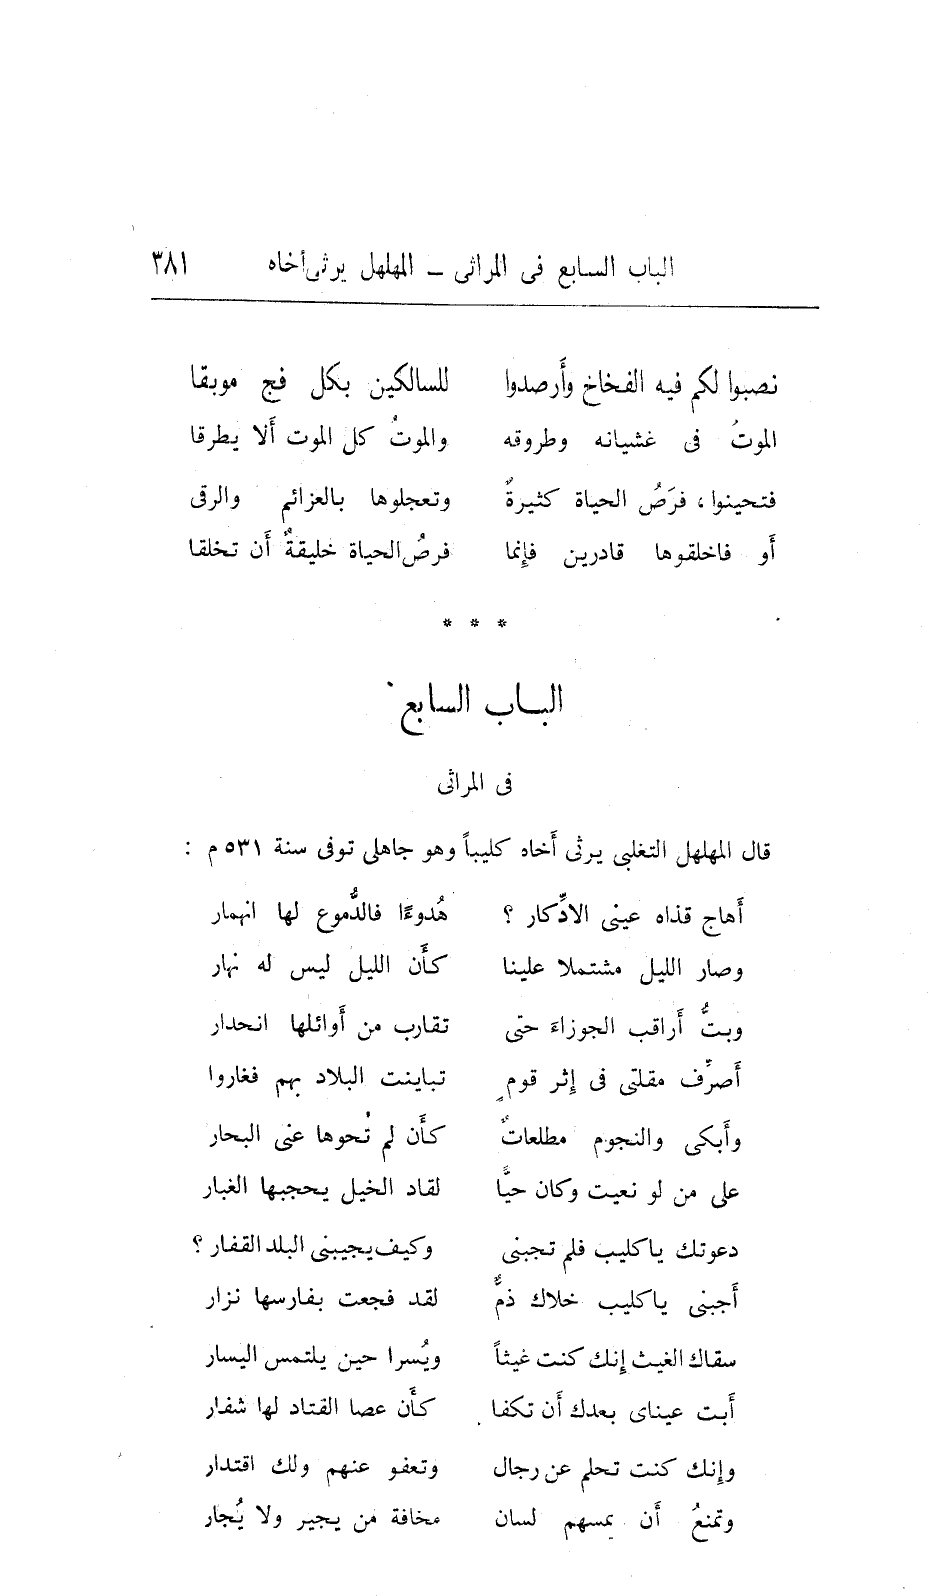 الباب السابع فى المراثى – المهلهل يرثى أخاه ٣٨١
نصبوا لكم فيه الفخاخ وأَرصدوا للسالكين بكل فج موبقا
الموتُ فى غشيانه وطروقه والموتُ كل الموت أَلا يطرقا
فتحينوا ، فرَصُ الحياة كثيرةٌ وتعجلوها بالعزائم والرقى
أَو فاخلقوها قادرين فإِنما فرصُ الحياة خليقةٌ أَن تخلقا
* * *
البـاب السابع
فى المراثى
قال المهلهل التغلبى يرثى أَخاه كليباً وهو جاهلى توفى سنة ٥٣١ م :
أَهاج قذاه عينى الادِّكار ؟ هُدوءًا فالدُّموع لها انهمار
وصار الليل مشتملا علينا كأَن الليل ليس له نهار
وبتُّ أَراقب الجوزاءَ حتى تقارب من أَوائلها انحدار
أَصرِّف مقلتى فى إِثر قومٍ تباينت البلاد بهم فغاروا
وأَبكى والنجوم مطلعاتٌ كأَن لم تُحوها عنى البحار
على من لو نعيت وكان حيًّا لقاد الخيل يحجبها الغبار
دعوتك ياكليب فلم تجبنى وكيف يجيبنى البلد القفار ؟
أَجبنى ياكليب خلاك ذمٌّ لقد فجعت بفارسها نزار
سقاك الغيث إِنك كنت غيثاً ويُسرا حين يلتمس اليسار
أَبت عيناى بعدك أَن تكفا كأَن عصا القتاد لها شفار
وإِنك كنت تحلم عن رجال وتعفو عنهم ولك اقتدار
وتمنعُ أَن يمسهم لسان مخافة من يجير ولا يُجار